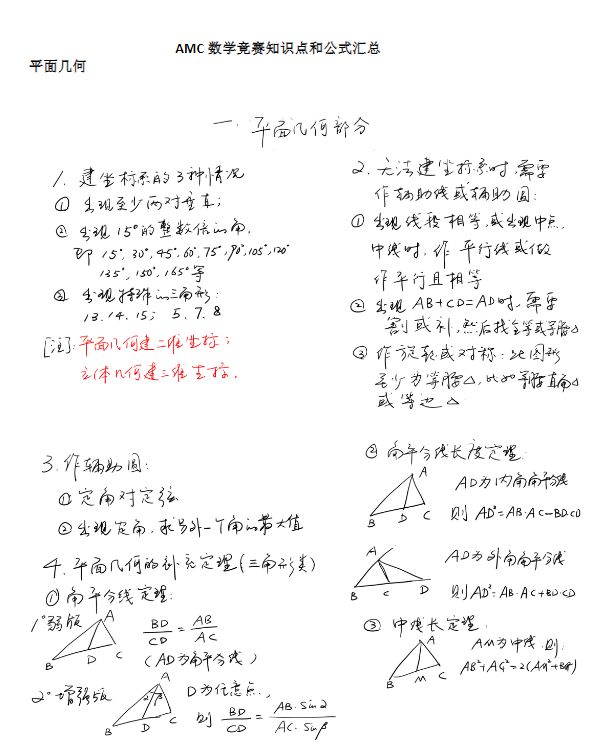 AMC 数学竞赛知识点和公式汇总
平面几何
一. 平面几何部分
1. 建坐标系的3种情况
① 出现至少两对垂直;
② 出现15°的整数倍的角,
即 15°,30°,45°,60°,75°,90°,105°,120°
135°,150°,165°等
③ 出现特殊的三角形:
13.14.15; 5.7.8
[注]: 平面几何建二维坐标;
立体几何建三维坐标.
2. 无法建坐标系时,需要
作辅助线或辅助圆:
① 出现线段相等,或出现中点,
中线时,作平行线或做
作平行且相等
② 出现 AB+CD=AD时,需要
割或补,然后找全等或等腰△
③ 作旋转或对称:此图形
至少为等腰△,比如等腰直角△
或等边△
3. 作辅助圆:
① 定角对定弦
② 出现定角,求另外一个角的最大值
4. 平面几何的补充定理(三角形类)
① 角平分线定理:
1°弱版
A
B D C
BD/CD = AB/AC
(AD为角平分线)
2°增强版
A
α β
B D C
D为任意点,
则 BD/CD = AB·Sinα/AC·Sinβ
② 角平分线长度定理:
A
B D C
AD为内角角平分线
则 AD²=AB·AC-BD·CD
A
B C D
AD为外角角平分线
则AD²=AB·AC+BD·CD
③ 中线长定理:
A
B M C
AM为中线,则:
AB²+AC²=2(AM²+BM²)